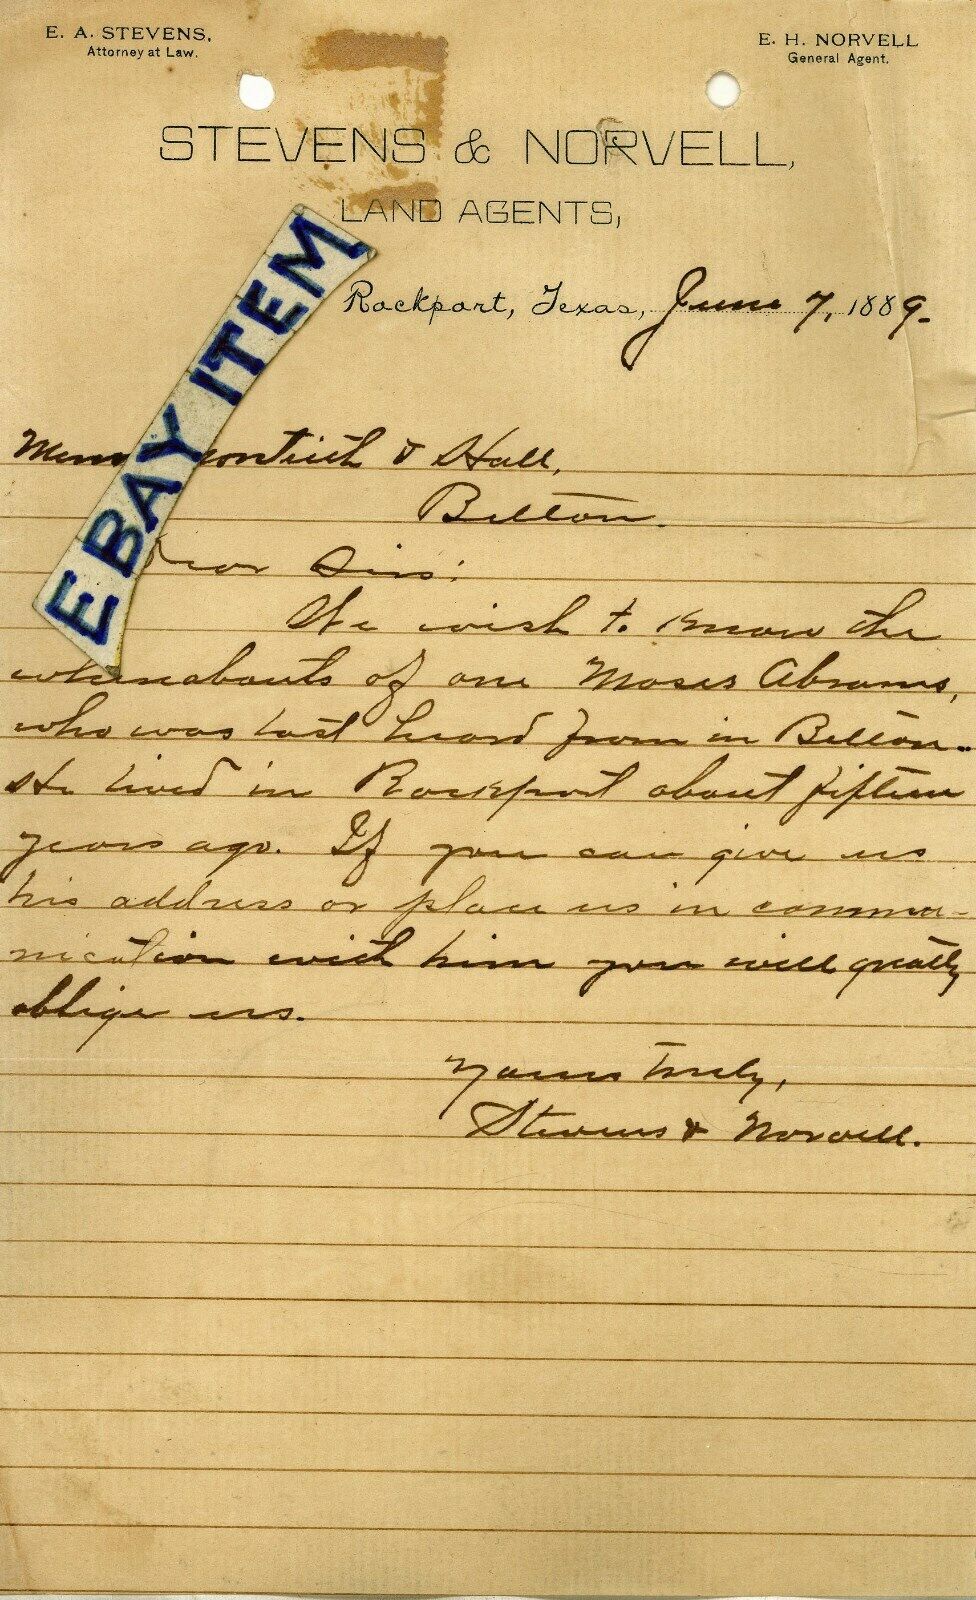 E. A. STEVENS,
Attorney at Law.
E. H. NORVELL
General Agent.
STEVENS & NORVELL,
LAND AGENTS,
Rockport, Texas, June 7, 1889.
EBAY ITEM
& Hall,
Belton.
Dear Sirs:
We wish to know the
whereabouts of one Moses Abrams,
who was last heard from in Belton.
He lived in Rockport about fifteen
years ago. If you can give us
his address or place us in commu-
nication with him you will greatly
oblige us.
Yours truly,
Stevens & Norvell.